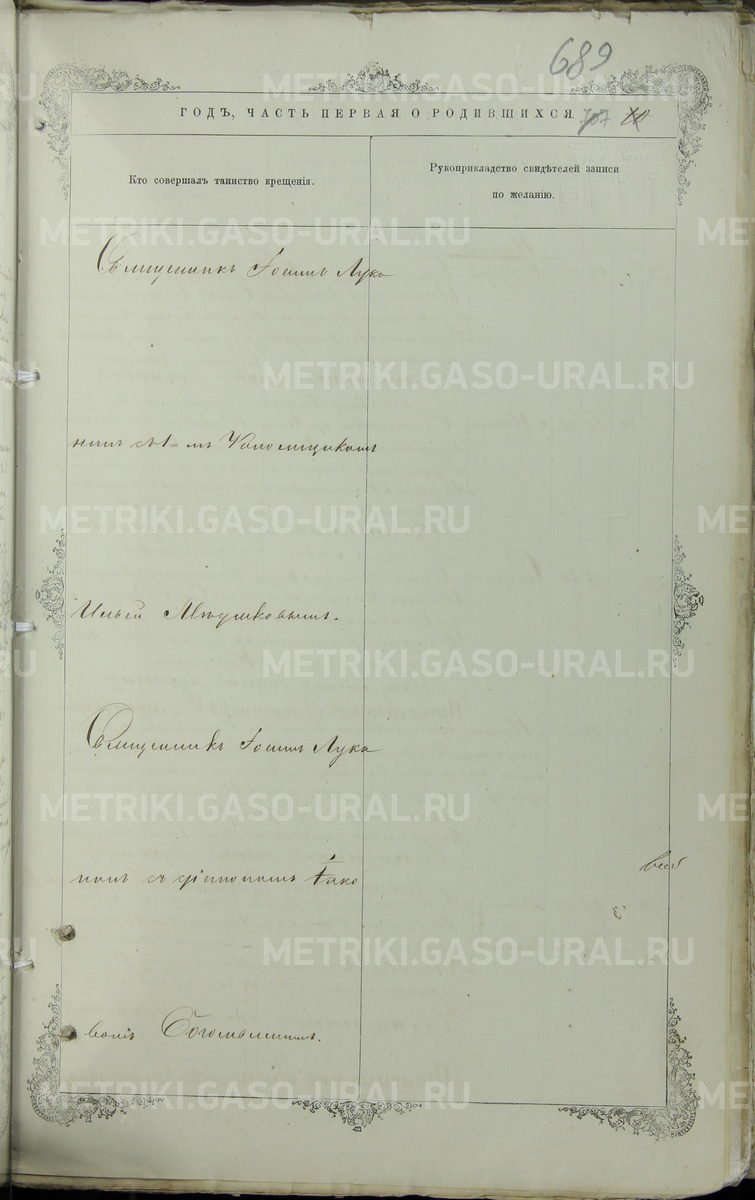 689
ГОДЪ, ЧАСТЬ ПЕРВАЯ О РОДИВШИХСЯ.
Кто совершалъ таинство крещенія.
Рукоприкладство свидѣтелей записи
по желанію.
Священникъ Іоаннъ Лука
нинъ съ Псаломщикомъ
Ильей
Священникъ Іоаннъ Лука
нинъ съ діакономъ Іако
вомъ
METRIKI.GASO-URAL.RU